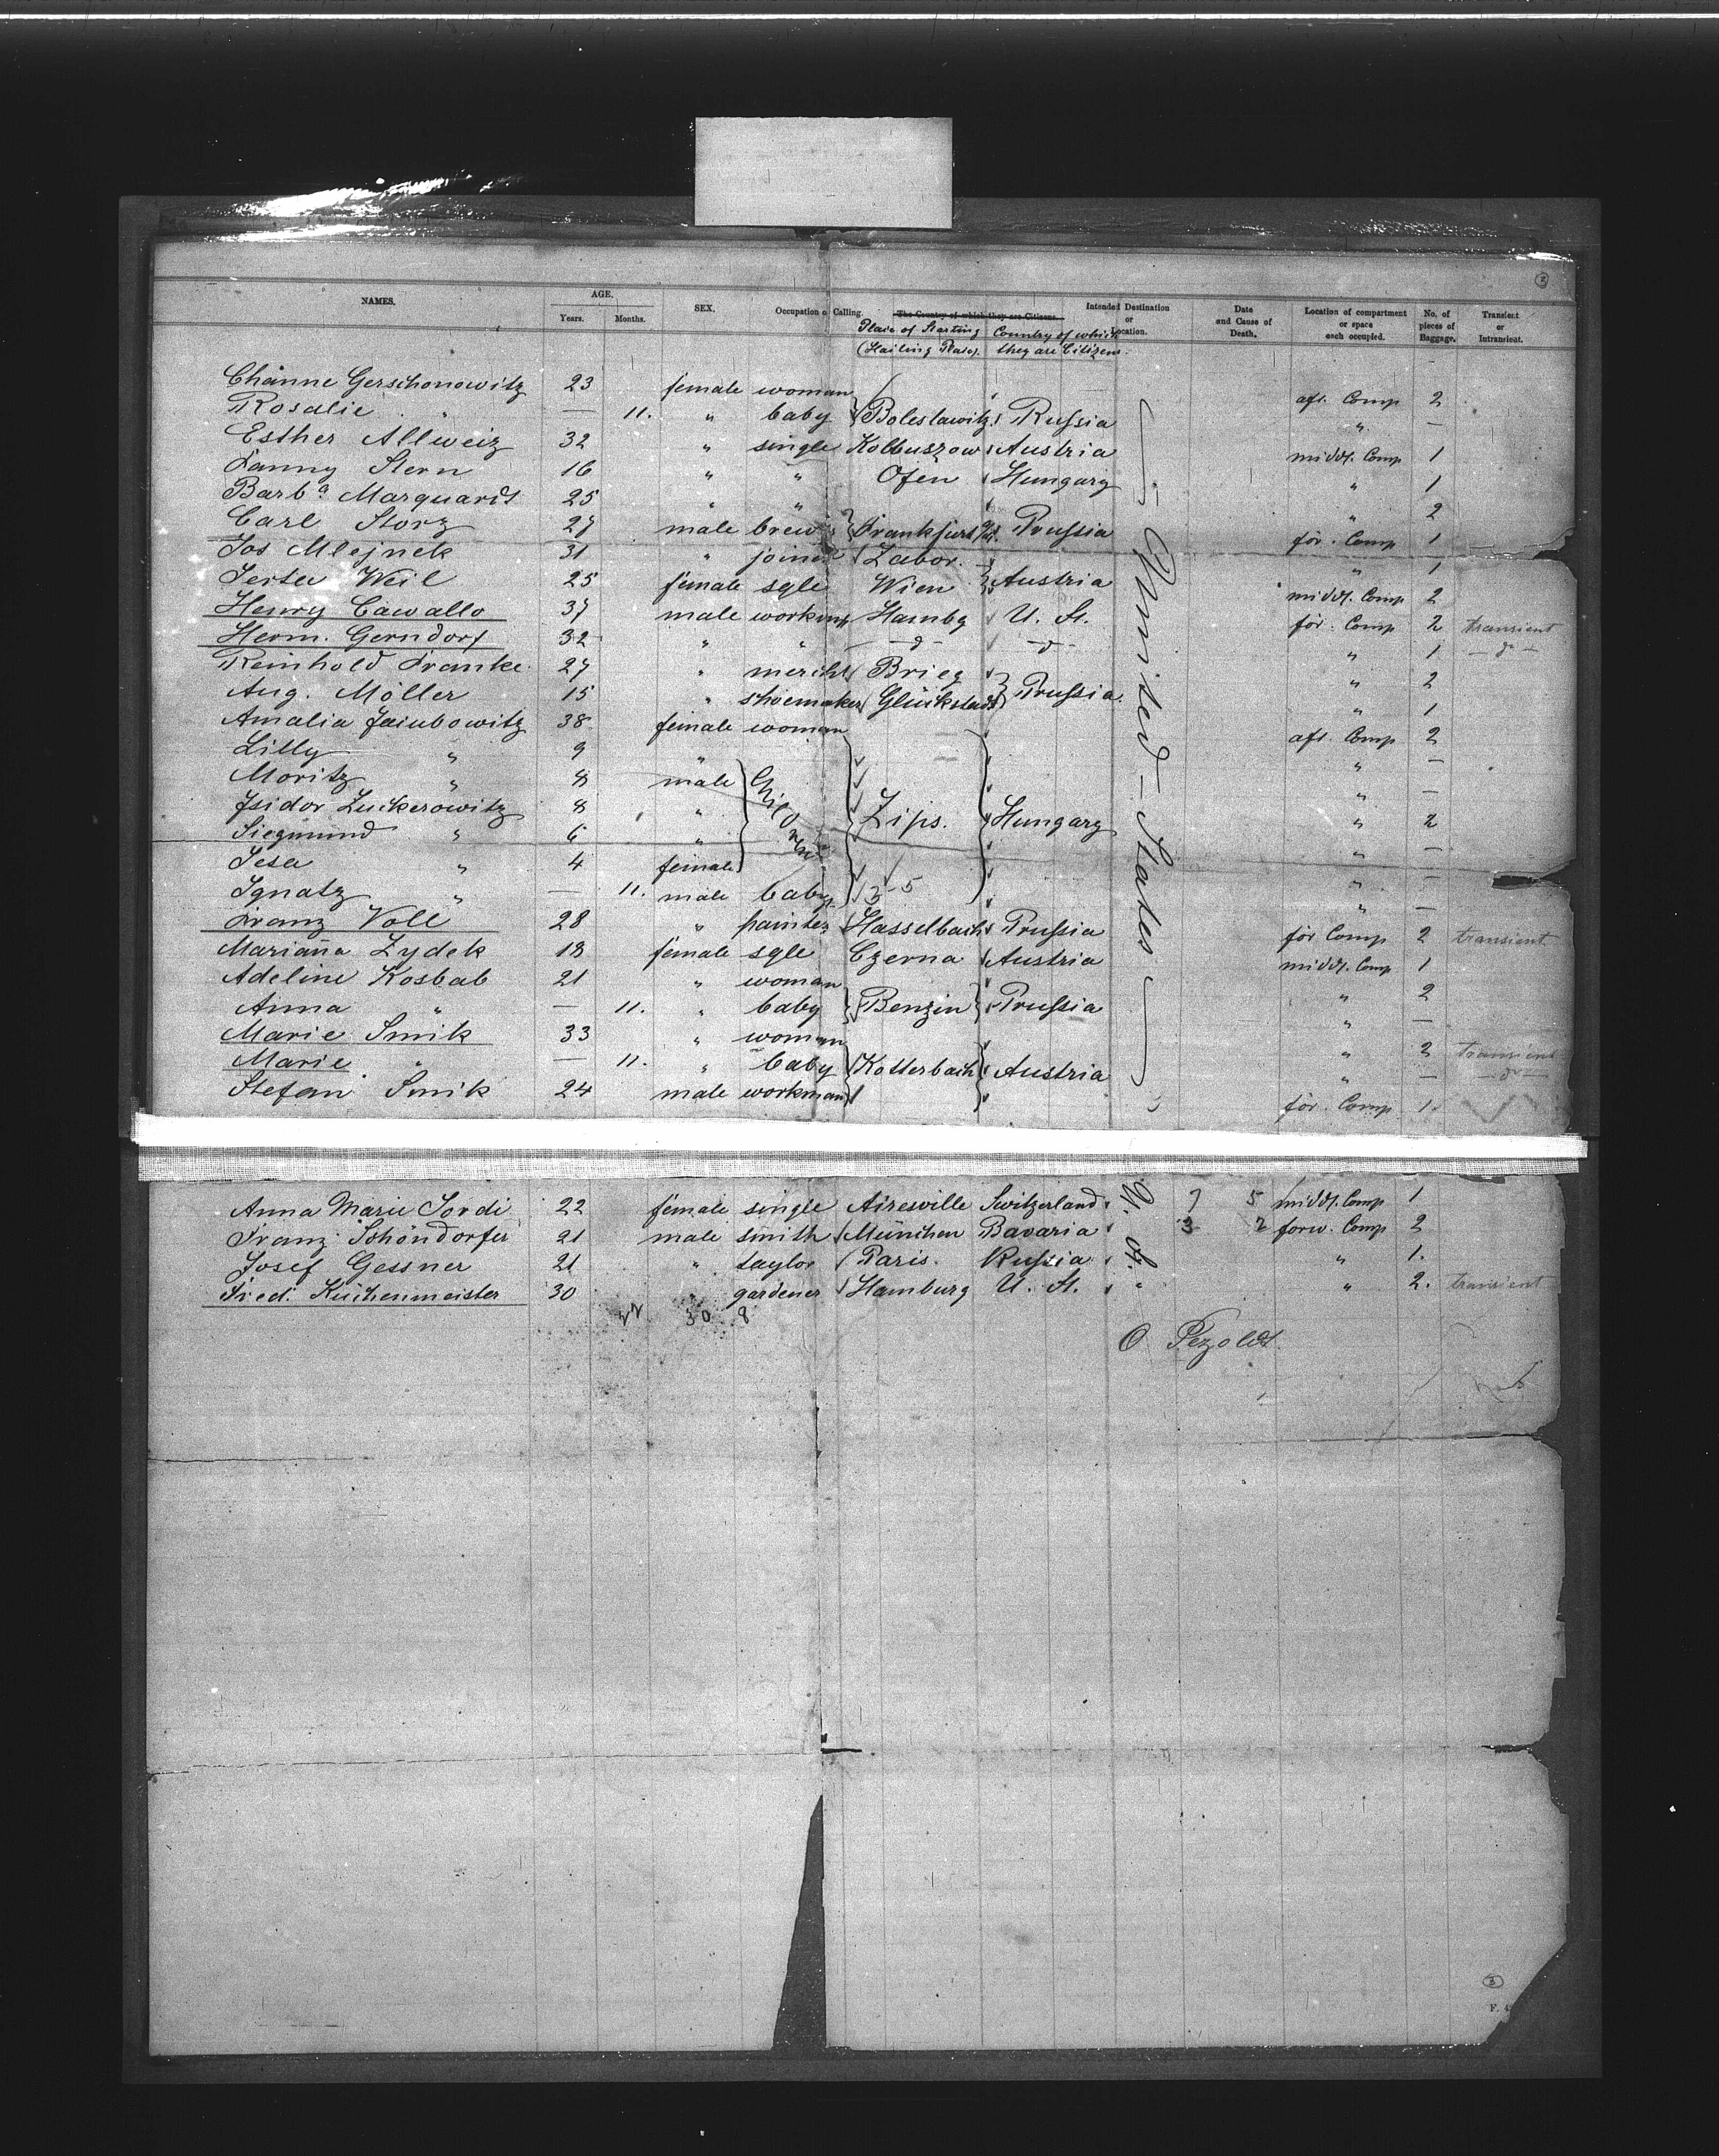 NAMES. AGE. SEX. Occupation o Calling. The Country of which they are Citizens. Intended Destination or Location. Date and Cause of Death. Location of compartment or space each occupied. No. of pieces of Baggage. Transient or Intransient.
Years. Months. Place of Starting (Hailing Place). Country of which they are Citizens.
Chänne Gerschonowitz 23 female woman aft. Comp 2
Rosalie " — 11. " baby Boleslawitz Russia " —
Esther Allweiz 32 " single Kolbuszow Austria middl. Comp 1
Fanny Stern 16 " " Ofen Hungary " 1
Barba Marquardt 25 " " " 2
Carl Storz 27 male brew Frankfurt Prussia för. Comp 1
Jos Mlejnek 31 " joiner Zabor. " 1
Jerta Weil 25 female sgle Wien Austria middl. Comp 2
Henry Cawallo 37 male workm Hambg U. St. för. Comp 2 transient
Herm. Gerndorf 32 " " — d — — d — " 1 — do —
Reinhold Franke 27 " mercht Brieg " 2
Aug. Möller 15 " shoemaker Glückstadt Prussia " 1
Amalia Jacubowitz 38 female woman aft. Comp 2
Lilly " 9 " " —
Moritz " 8 male Children " —
Isidor Zuckerowitz 8 " Zips. Hungary " 2
Siegmund " 6 " " —
Jesa " 4 female " —
Ignatz " — 11. male baby 3-5 " —
Franz Voll 28 " painter Hasselbach Prussia för Comp 2 transient
Mariaña Zydek 18 female sgle Czerna Austria middl. Comp 1
Adeline Kosbab 21 " woman " 2
Anna " — 11. " baby Benzin Prussia " —
Marie Smik 33 " woman " 2 transient
Marie " — 11. " baby Kotterbach Austria " — — do —
Stefan Smik 24 male workman för. Comp 1.
United-States
Anna Marie Jordi 22 female single Airesville Switzerland U. St. 7 5 middl. Comp 1
Franz Schöndorfer 21 male smith München Bavaria 3 2 forw. Comp 2
Josef Gessner 21 " taylor Paris. Russia " 1.
Fred. Küchenmeister 30 " gardener Hamburg U. St. " " 2. transient
30 8
O Pezoldt.
3
F. 4